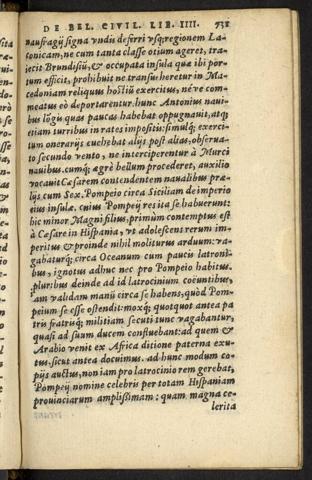 DE BEL. CIVIL. LIB. IIII.
naufragij signa vndis deferri vsq; regionem La-
conicam, ne cum tanta classe otium ageret, tra-
iecit Brundisiū, & occupata insula quæ ibi por-
tum efficit, prohibuit ne transueheretur in Ma-
cedoniam reliquus hostiū exercitus, néve com-
meatus eò deportarentur. hunc Antonius naui-
bus lōgis quas paucas habebat oppugnauit, atq;
etiam turribus in rates impositis: simulq; exerci-
tum onerarijs euehebat alijs post alias, obserua-
to secundo vento, ne interciperentur à Murci
nauibus. cumq; ægrè bellum procederet, auxilio
vocauit Cæsarem contendentem naualibus præ-
lijs cum Sex. Pompeio circa Siciliam de imperio
eius insulæ. cuius Pompeij res ita se habuerunt:
hic minor Magni filius, primùm contemptus est
à Cæsare in Hispania, vt adolescens rerum im-
peritus & proinde nihil moliturus arduum: va-
gabaturq; circa Oceanum cum paucis latroni-
bus, ignotus adhuc nec pro Pompeio habitus.
pluribus deinde ad id latrocinium coëuntibus,
iam validam manū circa se habens, quòd Pom-
peium se esse ostendit: moxq; quotquot antea pa
tris fratrisq; militiam secuti tunc vagabantur,
quasi ad suum ducem confluebant: ad quem &
Arabio venit ex Africa ditione paterna exu-
tus, sicut antea docuimus. ad hunc modum co-
pijs auctus, non iam pro latrocinio rem gerebat,
Pompeij nomine celebris per totam Hispaniam
prouinciarum amplissimam: quam magna ce-
lerita